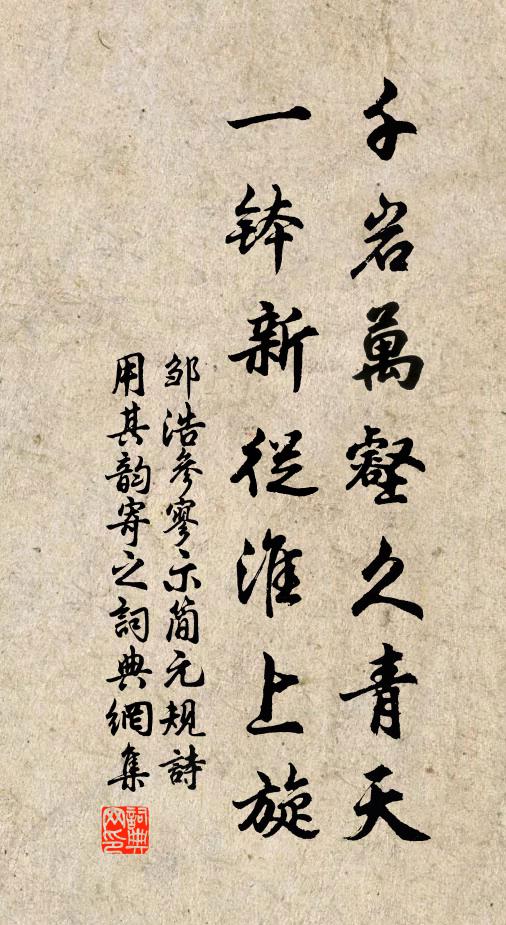 千岩萬壑久青天
一鉢新從淮上旋
邹浩參寥示简元規詩
用其韵寄之詞典網集
詞典網印